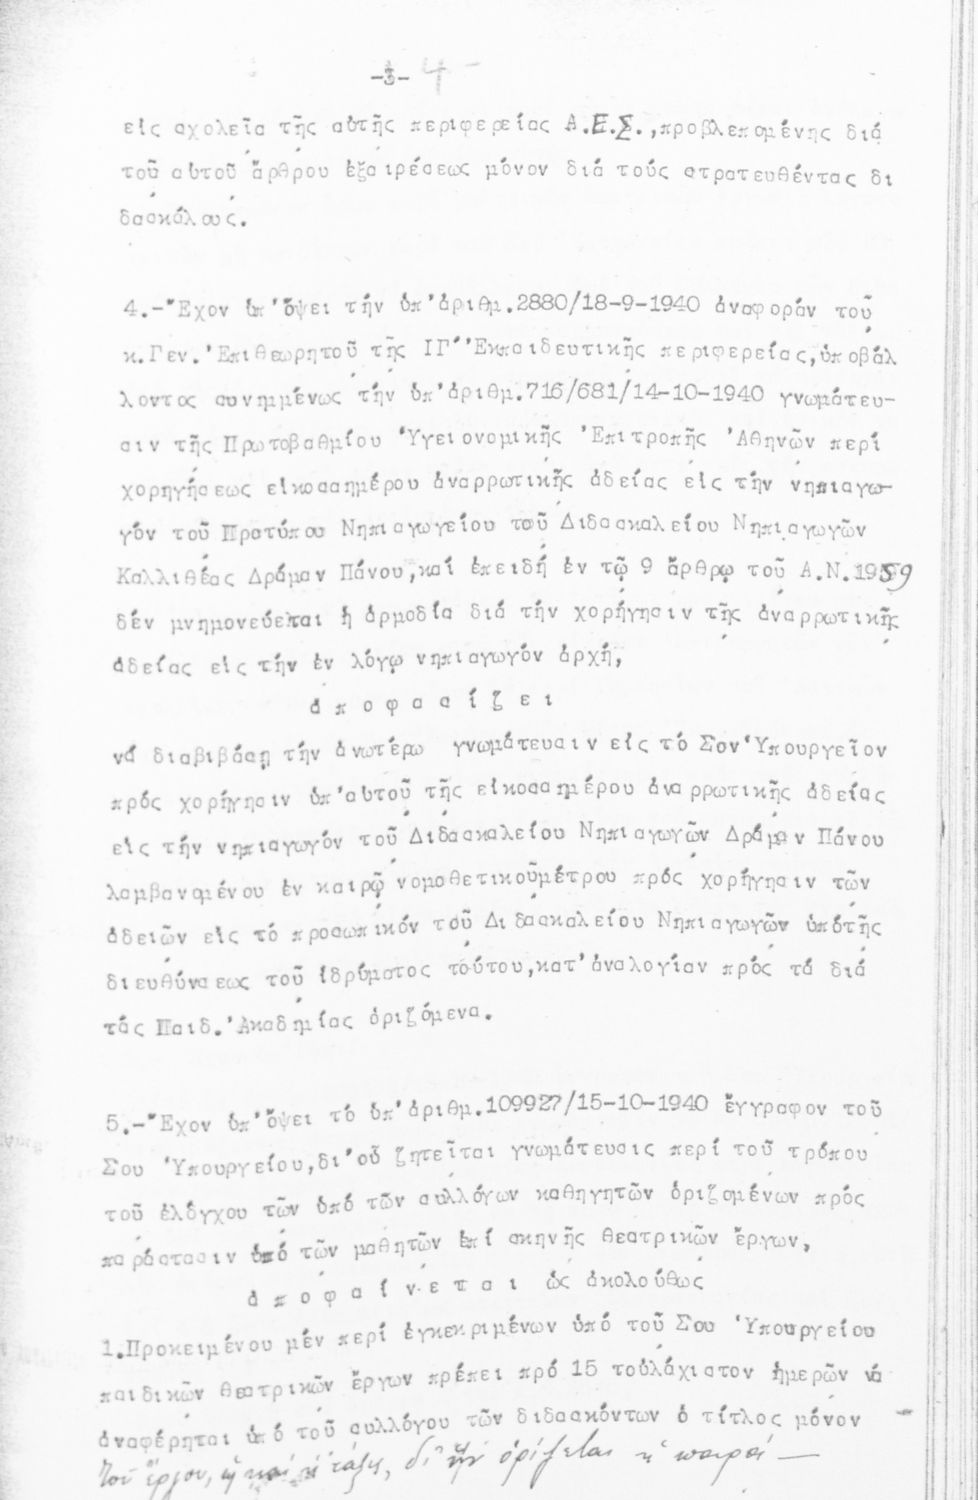 -3- 4 -
εἰς σχολεῖα τῆς αὐτῆς περιφερείας Α.Ε.Σ.,προβλεπομένης διά
τοῦ αὐτοῦ ἄρθρου ἐξαιρέσεως μόνον διά τούς στρατευθέντας δι
δασκάλους.
4.-Ἔχον ὑπ'ὄψει τήν ὑπ'ἀριθμ.2880/18-9-1940 ἀναφοράν τοῦ
κ.Γεν.Ἐπιθεωρητοῦ τῆς ΙΓ΄Ἐκπαιδευτικῆς περιφερείας,ὑποβάλ
λοντος συνημμένως τήν ὑπ'ἀριθμ.716/681/14-10-1940 γνωμάτευ-
σιν τῆς Πρωτοβαθμίου Ὑγειονομικῆς Ἐπιτροπῆς Ἀθηνῶν περί
χορηγήσεως εἰκοσαημέρου ἀναρρωτικῆς ἀδείας εἰς τήν νηπιαγω-
γόν τοῦ Προτύπου Νηπιαγωγείου τοῦ Διδασκαλείου Νηπιαγωγῶν
Καλλιθέας Δράμαν Πάνου,καί ἐπειδή ἐν τῷ 9 ἄρθρῳ τοῦ Α.Ν.1939
δέν μνημονεύεται ἡ ἁρμοδία διά τήν χορήγησιν τῆς ἀναρρωτικῆς
ἀδείας εἰς τήν ἐν λόγῳ νηπιαγωγόν ἀρχή,
ἀ π ο φ α σ ί ζ ε ι
νά διαβιβάσῃ τήν ἀνωτέρω γνωμάτευσιν εἰς τό Σον Ὑπουργεῖον
πρός χορήγησιν ὑπ'αὐτοῦ τῆς εἰκοσαημέρου ἀναρρωτικῆς ἀδείας
εἰς τήν νηπιαγωγόν τοῦ Διδασκαλείου Νηπιαγωγῶν Δράμαν Πάνου
λαμβανομένου ἐν καιρῷ νομοθετικοῦμέτρου πρός χορήγησιν τῶν
ἀδειῶν εἰς τό προσωπικόν τοῦ Διδασκαλείου Νηπιαγωγῶν ὑπότῆς
διευθύνσεως τοῦ ἱδρύματος τούτου,κατ'ἀναλογίαν πρός τά διά
τάς Παιδ.Ἀκαδημίας ὁριζόμενα.
5.-Ἔχον ὑπ'ὄψει τό ὑπ'ἀριθμ.109927/15-10-1940 ἔγγραφον τοῦ
Σου Ὑπουργείου,δι'οὗ ζητεῖται γνωμάτευσις περί τοῦ τρόπου
τοῦ ἐλέγχου τῶν ὑπό τῶν συλλόγων καθηγητῶν ὁριζομένων πρός
παράστασιν ὑπό τῶν μαθητῶν ἐπί σκηνῆς θεατρικῶν ἔργων,
ἀ π ο φ α ί ν ε τ α ι ὡς ἀκολούθως
1.Προκειμένου μέν περί ἐγκεκριμένων ὑπό τοῦ Σου Ὑπουργείου
παιδικῶν θεατρικῶν ἔργων πρέπει πρό 15 τοὐλάχιστον ἡμερῶν νά
ἀναφέρηται ὑπό τοῦ συλλόγου τῶν διδασκόντων ὁ τίτλος μόνον
τοῦ ἔργου, καί ἡ τάξις, δι' ἥν ὁρίζεται ἡ